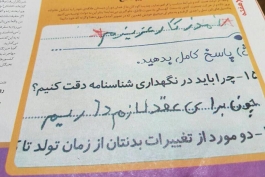 پاسخ کامل بدهید.
۱۵- چرا باید در نگهداری شناسنامه دقت کنیم؟
چون برای عقد لازم داریم
-دو مورد از تغییرات بدنتان از زمان تولد تا